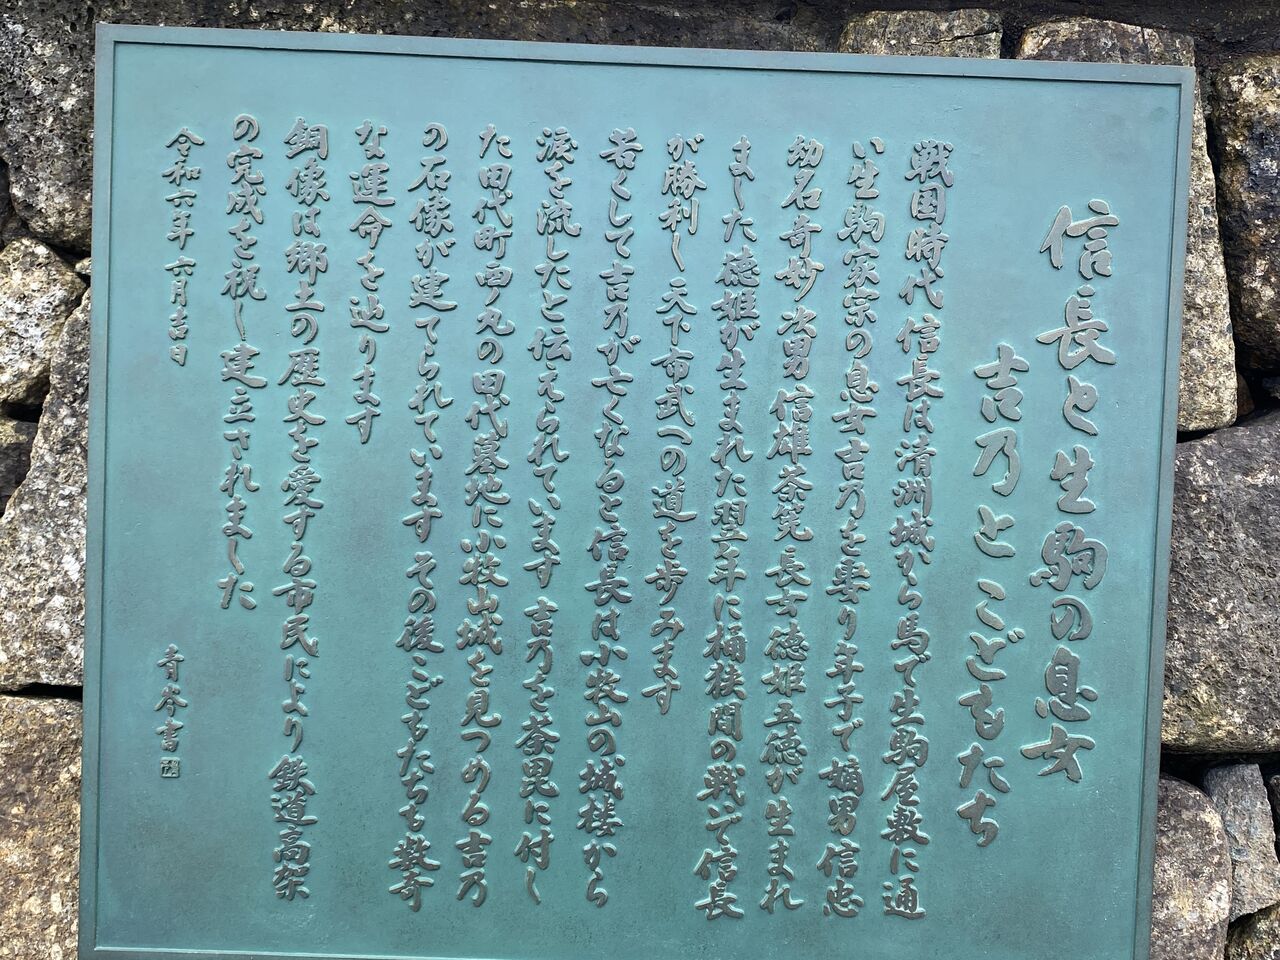 信長と生駒の息女
吉乃とこどもたち
戦国時代 信長は清洲城から馬で生駒屋敷に通
い生駒家宗の息女吉乃を娶り年子で嫡男信忠
幼名奇妙 次男信雄茶筅 長女徳姫五徳が生まれ
ました 徳姫が生まれた翌年に桶狭間の戦いで信長
が勝利し 天下布武への道を歩みます
若くして吉乃が亡くなると信長は小牧山の城楼から
涙を流したと伝えられています 吉乃を荼毘に付し
た田代町西ノ丸の田代墓地に小牧山城を見つめる吉乃
の石像が建てられています その後こどもたちも数奇
な運命を辿ります
銅像は郷土の歴史を愛する市民により 鉄道高架
の完成を祝し建立されました
令和六年 六月吉日
青岑書